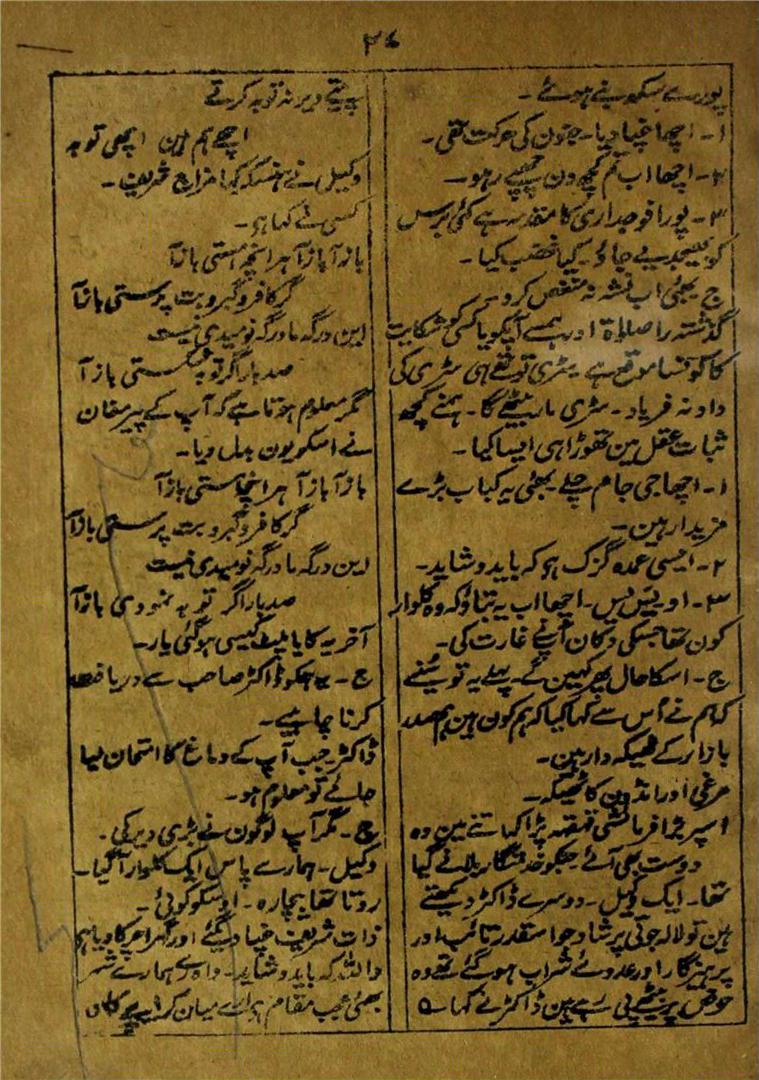 ۲۷
پورے سکھ بنے ہوئے۔
۱۔ اچھا غچا دیا۔ جنون کی حرکت تھی۔
۲۔ اچھا اب تم کچھ دن چھپے رہو۔
۳۔ پورا فوجداری کا مقدمہ ہے کئی برس
کو بھیجدیے جاؤ۔ کیا غضب کیا۔
ج بھئی اب نشہ نہ منغص کرو۔
گذشتہ را صلاۃ اور ہمسے آپکو یا کسی کو شکایت
کا کونسا موقع ہے۔ سڑی تو تھے ہی سڑی کی
داد نہ فریاد۔ سڑی مار بیٹھے گا۔ ہمنے کچھ
ثبات عقل مین تھوڑا ہی ایسا کیا۔
۱۔ اچھا جی جام چلے بھئی یہ کباب بڑے
مزیدار ہین۔
۲۔ ایسی عمدہ گزک ہو کہ باید و شاید۔
۳۔ او یس یس۔ اچھا اب یہ بتاؤ کہ وہ کلوار
کون تھا جسکی دکان آپنے غارت کی۔
ج۔ اسکا حال پھر کہین گے۔ پہلے یہ تو سُنیے
کہ ہم نے اُس سے کہا کیا کہ ہم کون ہین ہم صدر
بازار کے ٹھیکہ دار ہین۔
مرغی اور انڈون کا ٹھیکہ۔
اسپر بڑا فرمائشی قہقہہ پڑا کہ اتنے مین وہ
دوست بھی آئے۔ جنکو خدمتگار بلانے گیا
تھا۔ ایک وکیل۔ دوسرے ڈاکٹر دیکھتے
ہین تو لالہ جوتی پرشاد جو اسقدر تائب اور
پرہیزگار اور عدوئے شراب ہو گئے تھے وہ
حوض پر بیٹھے پی رہے ہین ڈاکٹر نے کہا ؎
پیتے دیر نہ توبہ کرتے
اچھے ہم این اچھی توبہ
وکیل نے ہنسکر کہا مزاج شریف۔
کسی نے کہا ہو۔
باز آ باز آ ہر انچہ ہستی باز آ
گر کافر و گبر و بت پرستی باز آ
این درگہ ما درگہ نومیدی نیست
صد بار اگر توبہ شکستی باز آ
مگر معلوم ہوتا ہے کہ آپ کے پیر مغان
نے اسکو یون بدل دیا۔
باز آ باز آ ہر انچہ ہستی باز آ
گر کافر و گبر و بت پرستی باز آ
این درگہ ما درگہ نومیدی نیست
صد بار اگر توبہ نمودی باز آ
آخر یہ کایا پلٹ کیسی ہو گئی یار۔
ج۔ یہ ہمکو ڈاکٹر صاحب سے دریافت
کرنا چاہیے۔
ڈاکٹر جب آپ کے دماغ کا امتحان لیا
جائے تو معلوم ہو۔
ج۔ مگر آپ لوگون نے بڑی دیر کی۔
وکیل۔ ہمارے پاس ایک کلوار آ گیا۔
روتا تھا بیچارہ۔ اوسکو کوئی۔
ذات شریف غچا دیگئے اور
واللہ کہ باید و شاید۔ واہ رے ہمارے شہر
بھئی عجب مقام ہے ارے میان